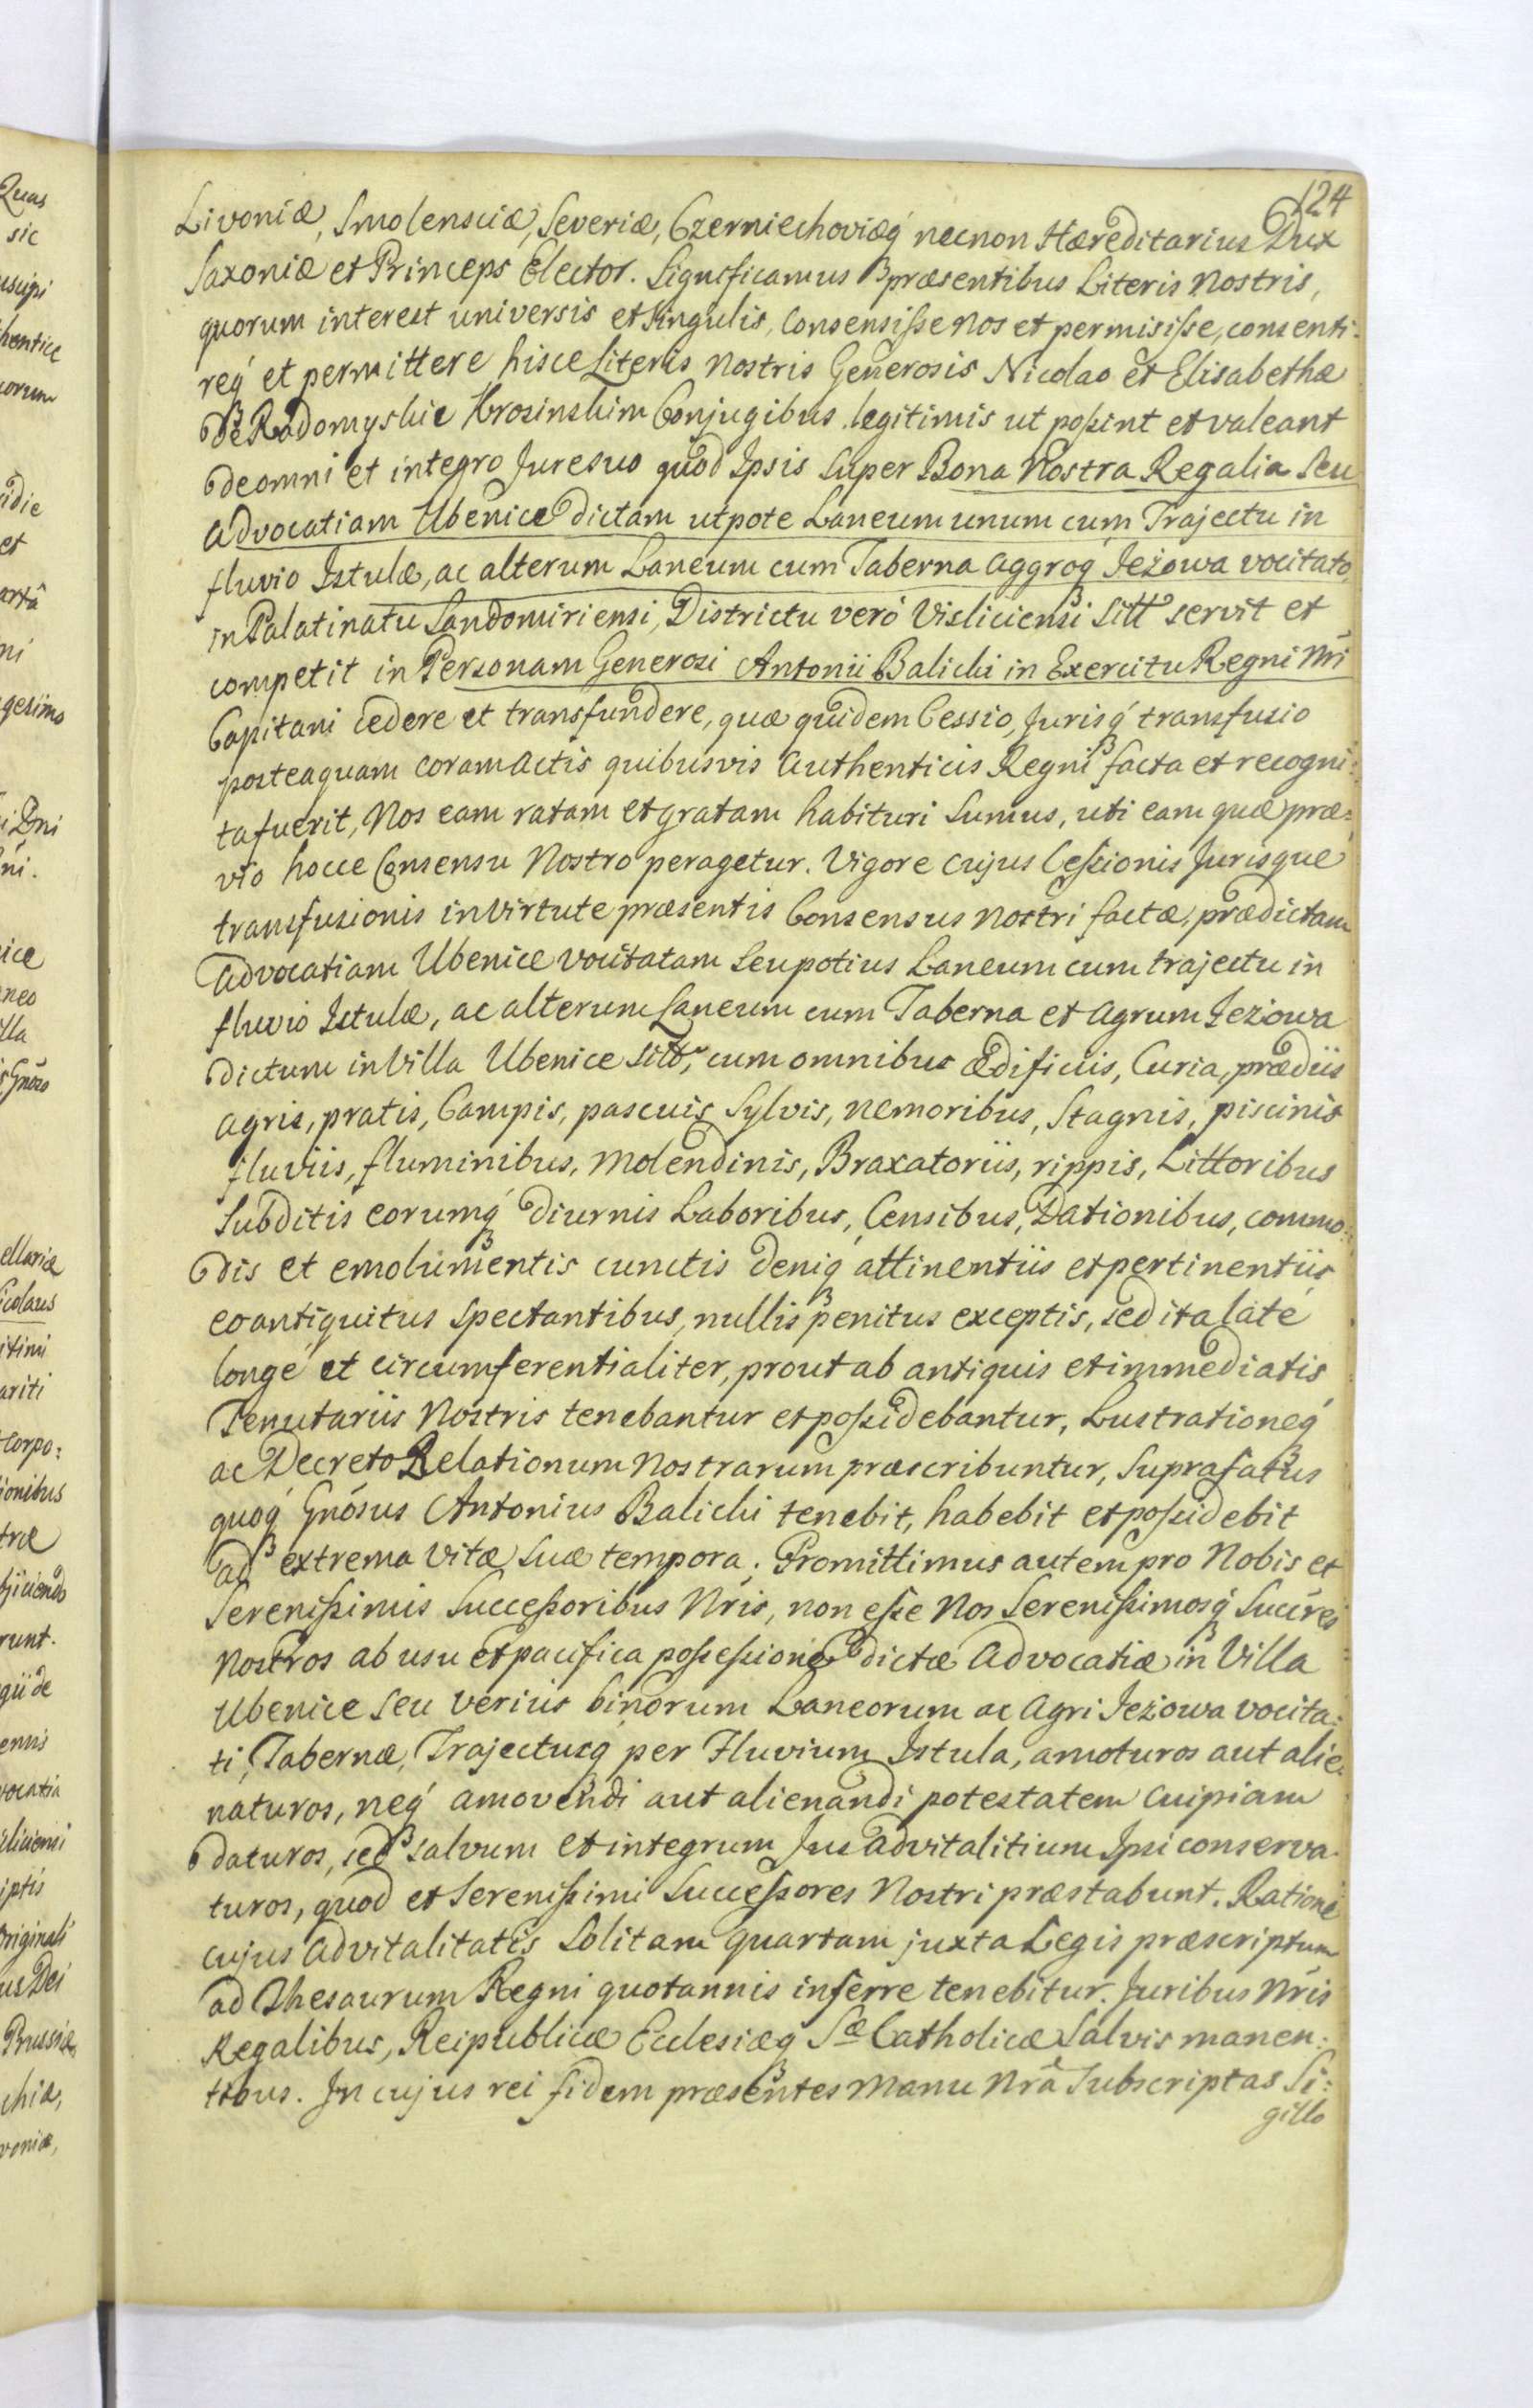 124
Livoniæ, Smolensciæ, Severiæ, Czerniechoviæq́ necnon Hæreditarius Dux
Saxoniæ et Princeps Elector. Significamus præsentibus Literis Nostris,
quorum interest universis et singulis, Consensisse Nos et permisisse, consenti-
req́ et permittere hisce Literis Nostris Generosis Nicolao et Elisabethæ
De Radomyskie Krosinskim Conjugibus legitimis ut possint et valeant
de omni et integro Jure suo quod Ipsis super Bona Nostra Regalia seu
Advocatiam Ubenice dictam utpote Laneum unum cum Trajectu in
fluvio Istulæ, ac alterum Laneum cum Taberna Aggroq́ Jeżowa vocitato
in Palatinatu Sandomiriensi, Districtu veró Visliciensi sitt servit et
competit in Personam Generosi Antonii Balicki in Exercitu Regni Nri
Capitani cedere et transfundere, quæ quidem Cessio, Jurisq́ transfusio
posteaquam coram Actis quibusvis Authenticis Regni facta et recogni:
ta fuerit, Nos eam ratam et gratam habituri sumus, uti eam quæ præ:
vio hocce Consensu Nostro peragetur. Vigore cujus Cessionis Jurisque
transfusionis in virtute præsentis Consensus Nostri factæ, prædictam
Advocatiam Ubenice vocitatam seu potius Laneum cum trajectu in
fluvio Istulæ, ac alterum Laneum cum Taberna et Agrum Jeżowa
dictum in Villa Ubenice sitt, cum omnibus Ædificiis, Curia, prædiis
Agris, pratis, Campis, pascuis Sylvis, nemoribus, Stagnis, piscinis
fluviis, fluminibus, Molendinis, Braxatoriis, rippis, Littoribus
Subditis eorumq́ Diurnis Laboribus, Censibus, Dationibus, commo:
dis et emolumentis cunctis deniq́ attinentiis et pertinentiis
eo antiquitus spectantibus, nullis penitus exceptis, sed ita laté
longé et circumferentialiter, prout ab antiquis et immediatis
Tenutariis Nostris tenebantur et possidebantur, Lustrationeq́
ac Decreto Relationum Nostrarum præscribuntur, Suprafatus
quoq́ Gnósus Antonius Balicki tenebit, habebit et possidebit
ad extrema Vitæ Suæ tempora. Promittimus autem pro Nobis et
Serenissimis Successoribus Nris, non esse Nos Serenissimosq́ Succres
Nostros ab usu et pacifica possessione dictæ Advocatiæ in Villa
Ubenice seu verius binorum Laneorum ac Agri Jeżowa vocita:
ti, Tabernæ, Trajectusq́ per Fluvium Istula, amoturos aut alie:
naturos, neq́ amovendi aut alienandi potestatem cuipiam
daturos, sed salvum et integrum Jus advitalitium Ipsi conserva
turos, quod et Serenissimi Successores Nostri præstabunt. Ratione
cujus Advitalitatis Solitam quartam juxta Legis præscriptum
ad Thesaurum Regni quotannis inferre tenebitur. Juribus Nris
Regalibus, Reipublicæ Ecclesiæq́ Sæ Catholicæ Salvis manen:
tibus. In cujus rei fidem præsentes Manu Nrâ Subscriptas Si:
gillo